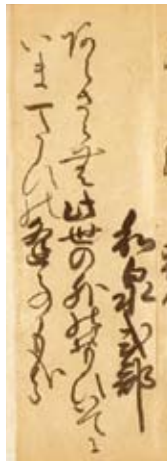 和泉式部
あらさらむ此世の外のおもひいてに
いま一たひの逢事もかな